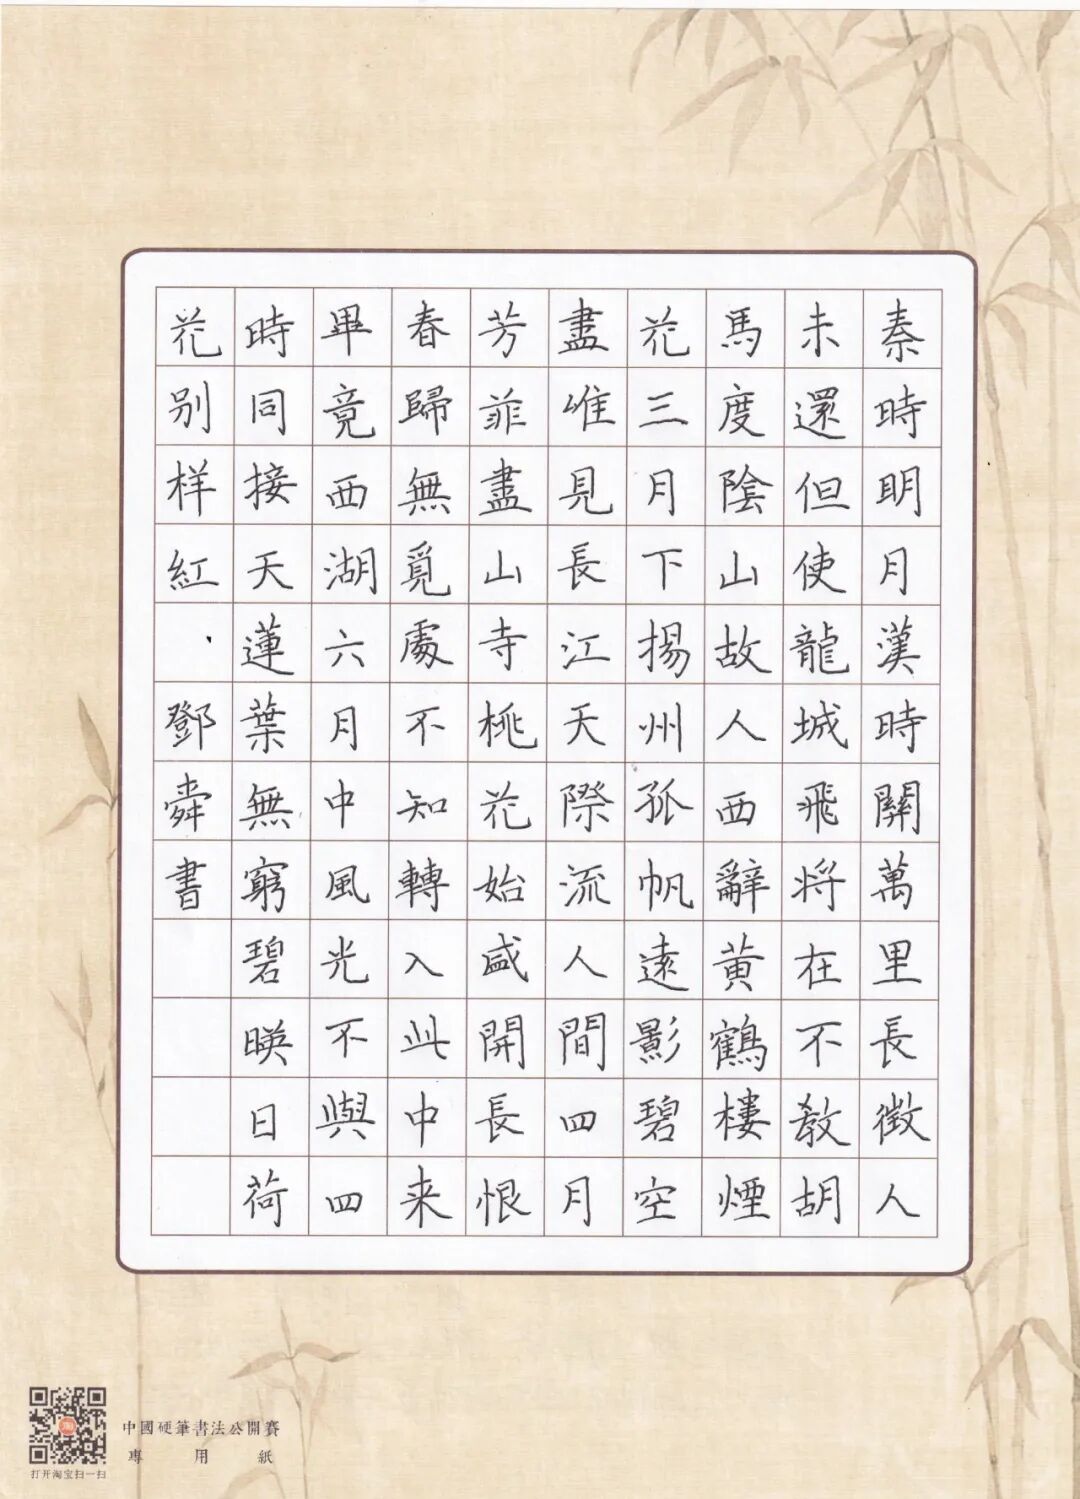 秦時明月漢時關萬里長徵人
未還但使龍城飛將在不教胡
馬度陰山故人西辭黄鶴樓煙
花三月下揚州孤帆遠影碧空
盡唯見長江天際流人間四月
芳菲盡山寺桃花始盛開長恨
春歸無覓處不知轉入此中来
畢竟西湖六月中風光不與四
時同接天蓮葉無窮碧暎日荷
花别样紅 鄧舜書
中國硬筆書法公開賽
專用紙
打开淘宝扫一扫